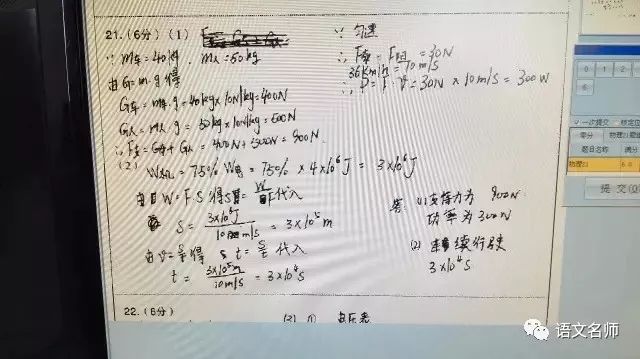 21.(6分)(1)
∵ m车=40kg, m人=50kg
由G=m·g得
G车=m车·g=40kg×10N/kg=400N
G人=m人·g=50kg×10N/kg=500N
∴F支=G车+G人=400N+500N=900N
(2)
W机=75% W电=75%×4×10⁶J=3×10⁶J
由 W=F·S 得S= 代入
S=3×10⁶J/ =3×10⁵m
由v=s/t得 t= 代入
t=3×10⁵m/10m/s=3×10⁴s
∵匀速
∴F牵=F阻=30N
36km/h=10m/s
∴P=F·V=30N×10m/s=300W
答:(1)支持力为900N
功率为300W
(2) 续行驶
3×10⁴s
22.(6分)
(2) ① 电压表
0 1 2
一次提交
零分
物理21题
题目名称 满分
物理21 6.0
提交(
语文名师